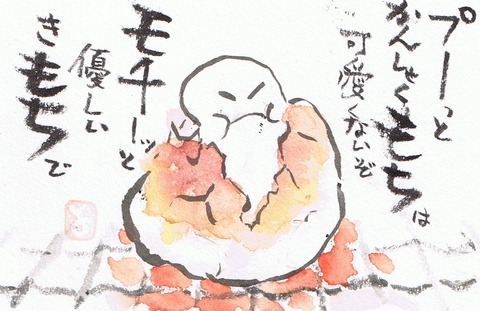 プーっと
かんしゃくもちは
可愛くないぞ
モチーッと
優しい
きもちで